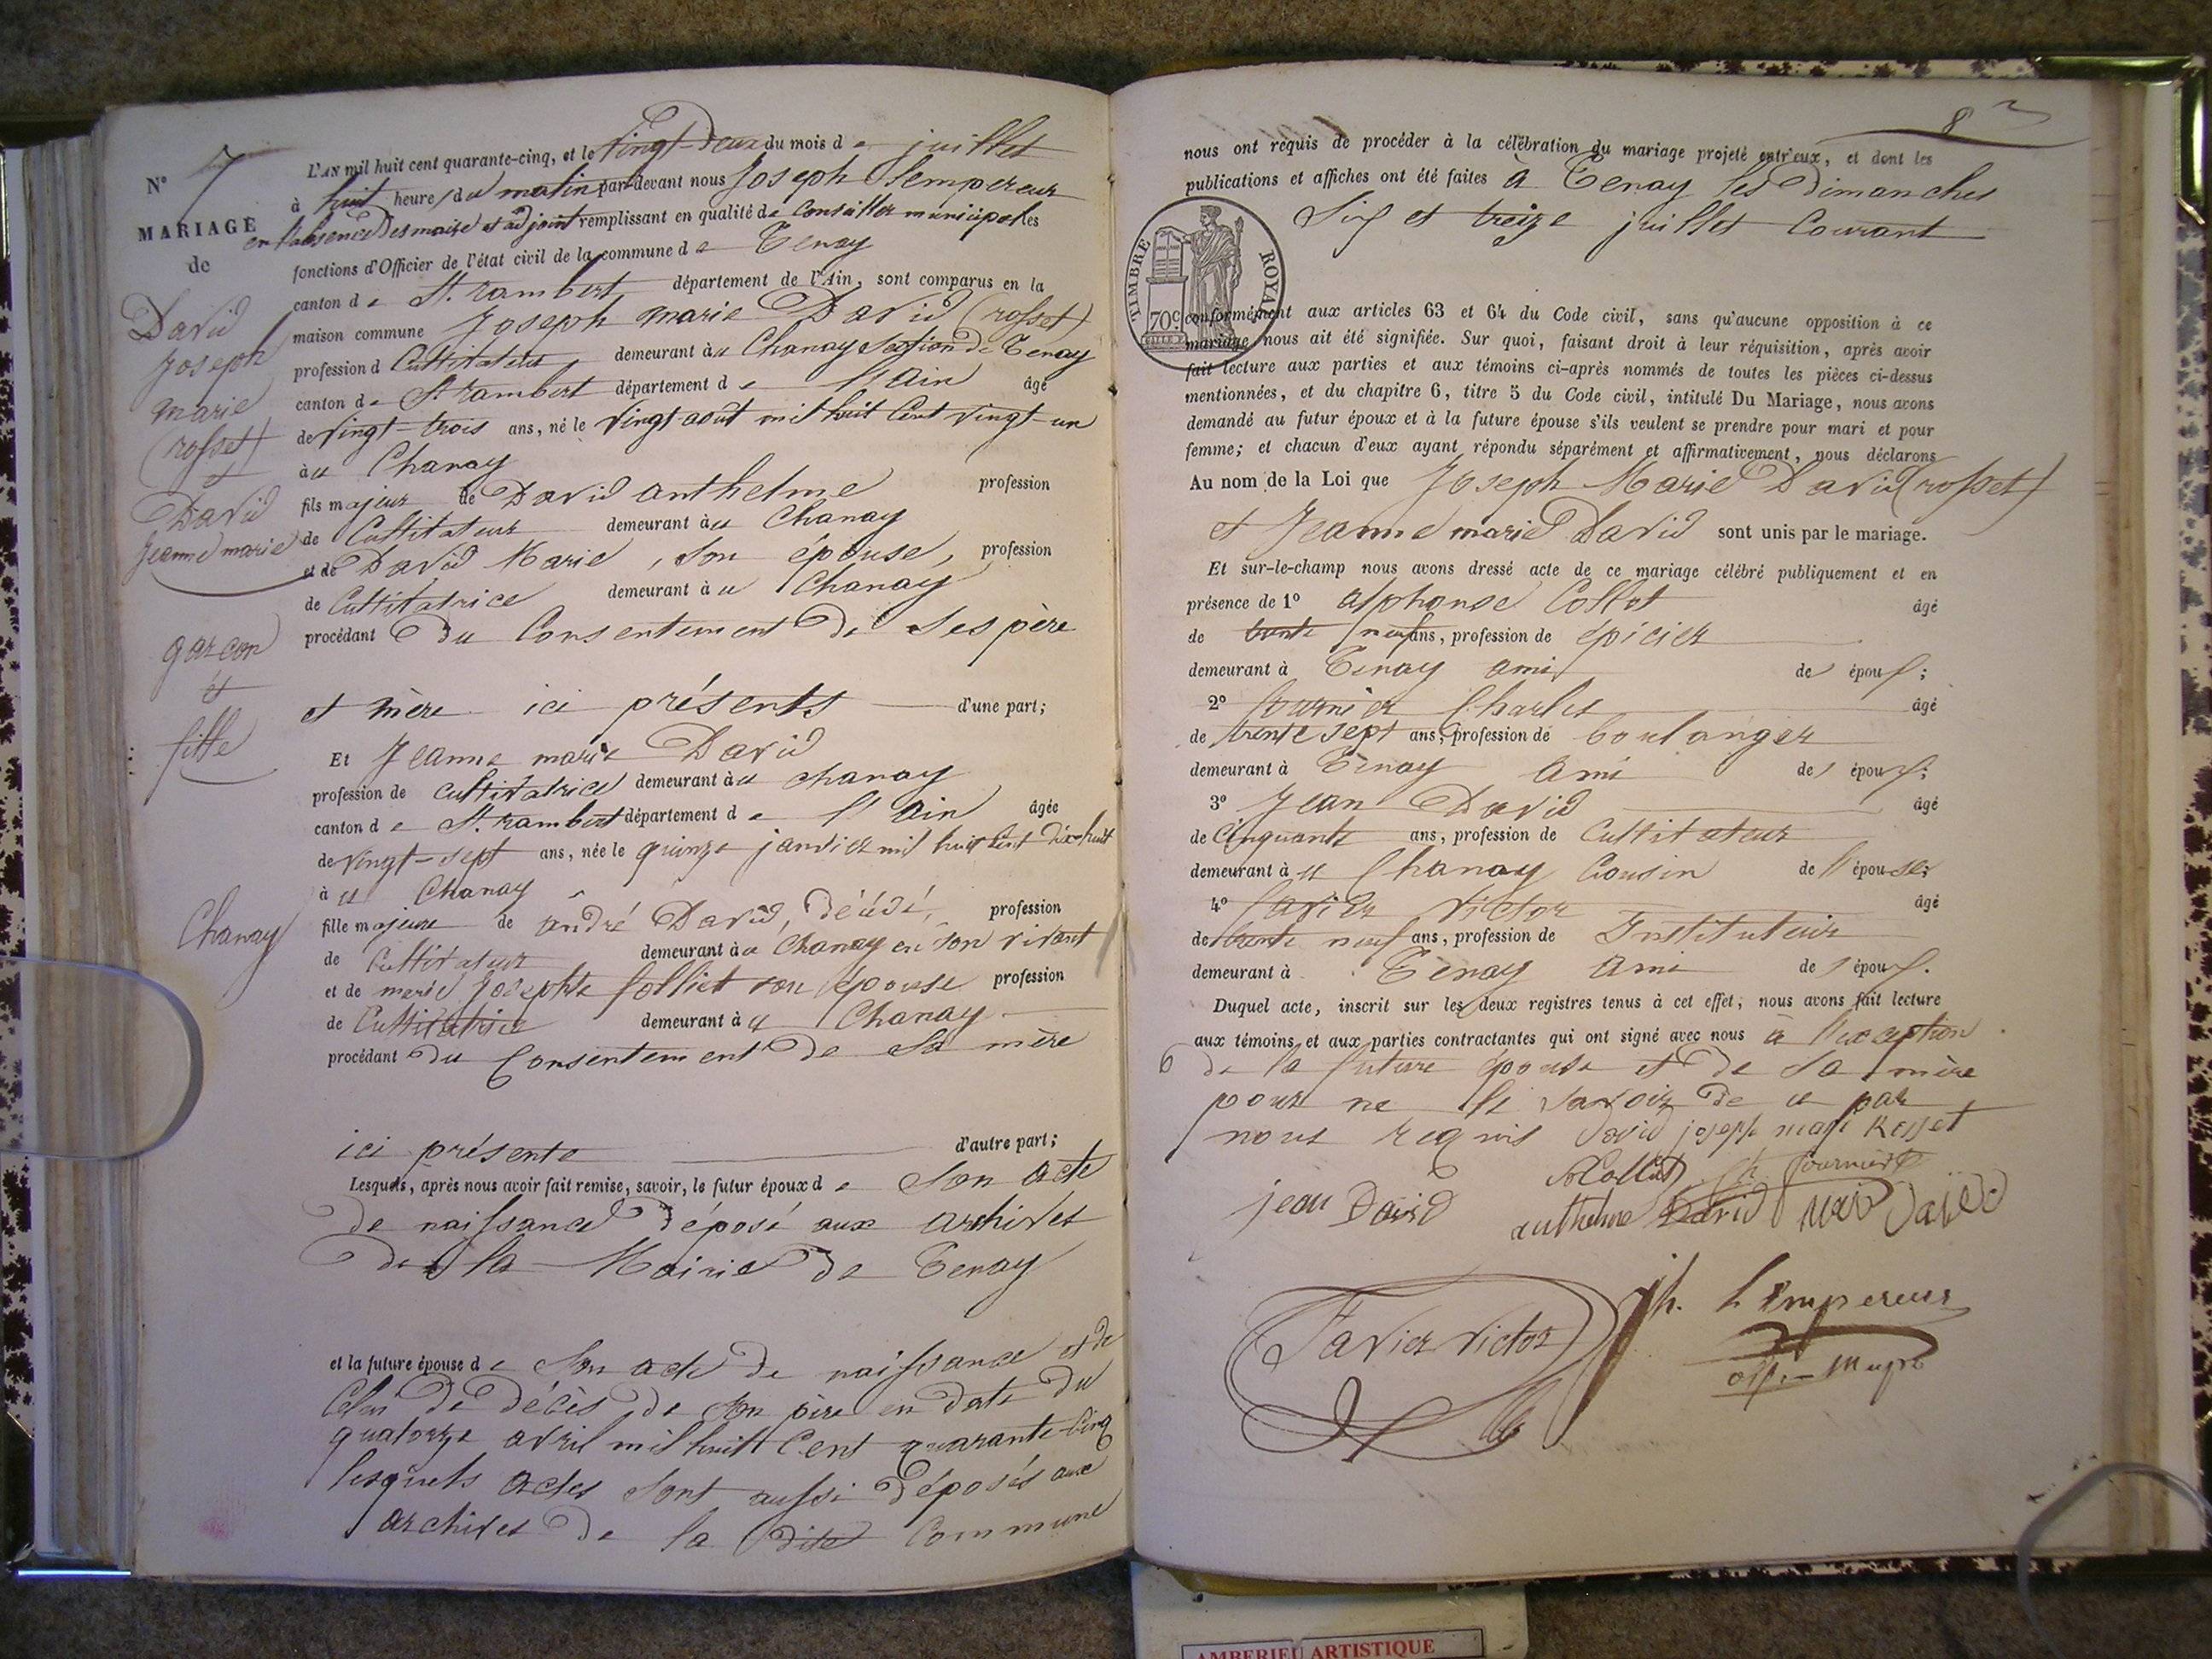 N° 7
MARIAGE
de
David
Joseph
marie
(rosset)
et
David
Jeanne marie
garcon
et
fille
Chanay
L'AN mil huit cent quarante-cinq, et le Vingt-Deux du mois de juillet
à huit heure du matin par-devant nous Joseph Lempereur
en l'absence Des maire et adjoint remplissant en qualité de Conseiller municipal les
fonctions d'Officier de l'état civil de la commune de Tenay
canton de St. rambert département de l'Ain, sont comparus en la
maison commune Joseph marie David (rosset)
profession d Cultivateur demeurant à Chanay Section De Tenay
canton de St rambert département de l'Ain âgé
de Vingt-trois ans, né le Vingt août mil huit Cent Vingt-un
à Chanay
fils majeur de David anthelme profession
de Cultivateur demeurant à Chanay
et de David Marie, Son épouse, profession
de Cultivatrice demeurant à Chanay
procédant Du Consentement De Ses père
et mère ici présents d'une part;
Et Jeanne marie David
profession de cultivatrice demeurant à chanay
canton de St. rambert département de l'Ain âgée
de Vingt-sept ans, née le quinze janvier mil huit Cent Dix-huit
à Chanay
fille majeure de andré David, Décédé, profession
de Cultivateur demeurant à Chanay en Son vivant
et de marie josephte folliet son épouse profession
de Cultivatrice demeurant à Chanay
procédant Du Consentement De Sa mère
ici présente d'autre part;
Lesquels, après nous avoir fait remise, savoir, le futur époux de Son acte
De naissance Déposé aux archives
De la Mairie De Tenay
et la future épouse de Son acte De naissance et De
Celui De Décès De Son père en Date Du
quatorze avril mil huit Cent quarante-Cinq
lesquels actes Sont aussi Déposés aux
archives De la Dite Commune
8
nous ont requis de procéder à la célébration du mariage projeté entr'eux, et dont les
publications et affiches ont été faites à Tenay les Dimanches
Six et treize juillet Courant
TIMBRE ROYAL
70 c
conformément aux articles 63 et 64 du Code civil, sans qu'aucune opposition à ce
mariage nous ait été signifiée. Sur quoi, faisant droit à leur réquisition, après avoir
fait lecture aux parties et aux témoins ci-après nommés de toutes les pièces ci-dessus
mentionnées, et du chapitre 6, titre 5 du Code civil, intitulé Du Mariage, nous avons
demandé au futur époux et à la future épouse s'ils veulent se prendre pour mari et pour
femme; et chacun d'eux ayant répondu séparément et affirmativement, nous déclarons
Au nom de la Loi que Joseph Marie David (rosset)
et Jeanne marie David sont unis par le mariage.
Et sur-le-champ nous avons dressé acte de ce mariage célébré publiquement et en
présence de 1° alphonse Collot âgé
de trente neuf ans, profession de épicier
demeurant à Tenay ami des époux;
2° fournier Charles âgé
de trente sept ans, profession de boulanger
demeurant à Tenay ami des époux;
3° Jean David âgé
de Cinquante ans, profession de Cultivateur
demeurant à Chanay Cousin de l'épouse;
4° favier Victor âgé
de trente neuf ans, profession de Instituteur
demeurant à Tenay ami des époux.
Duquel acte, inscrit sur les deux registres tenus à cet effet, nous avons fait lecture
aux témoins et aux parties contractantes qui ont signé avec nous à l'exception
De la future épouse et De Sa mère
pour ne le Savoir De ce par
nous requis David joseph marie Rosset
Collot Ch. fournier
jean David anthelme David marie David
Favier Victor
Jh. Lempereur